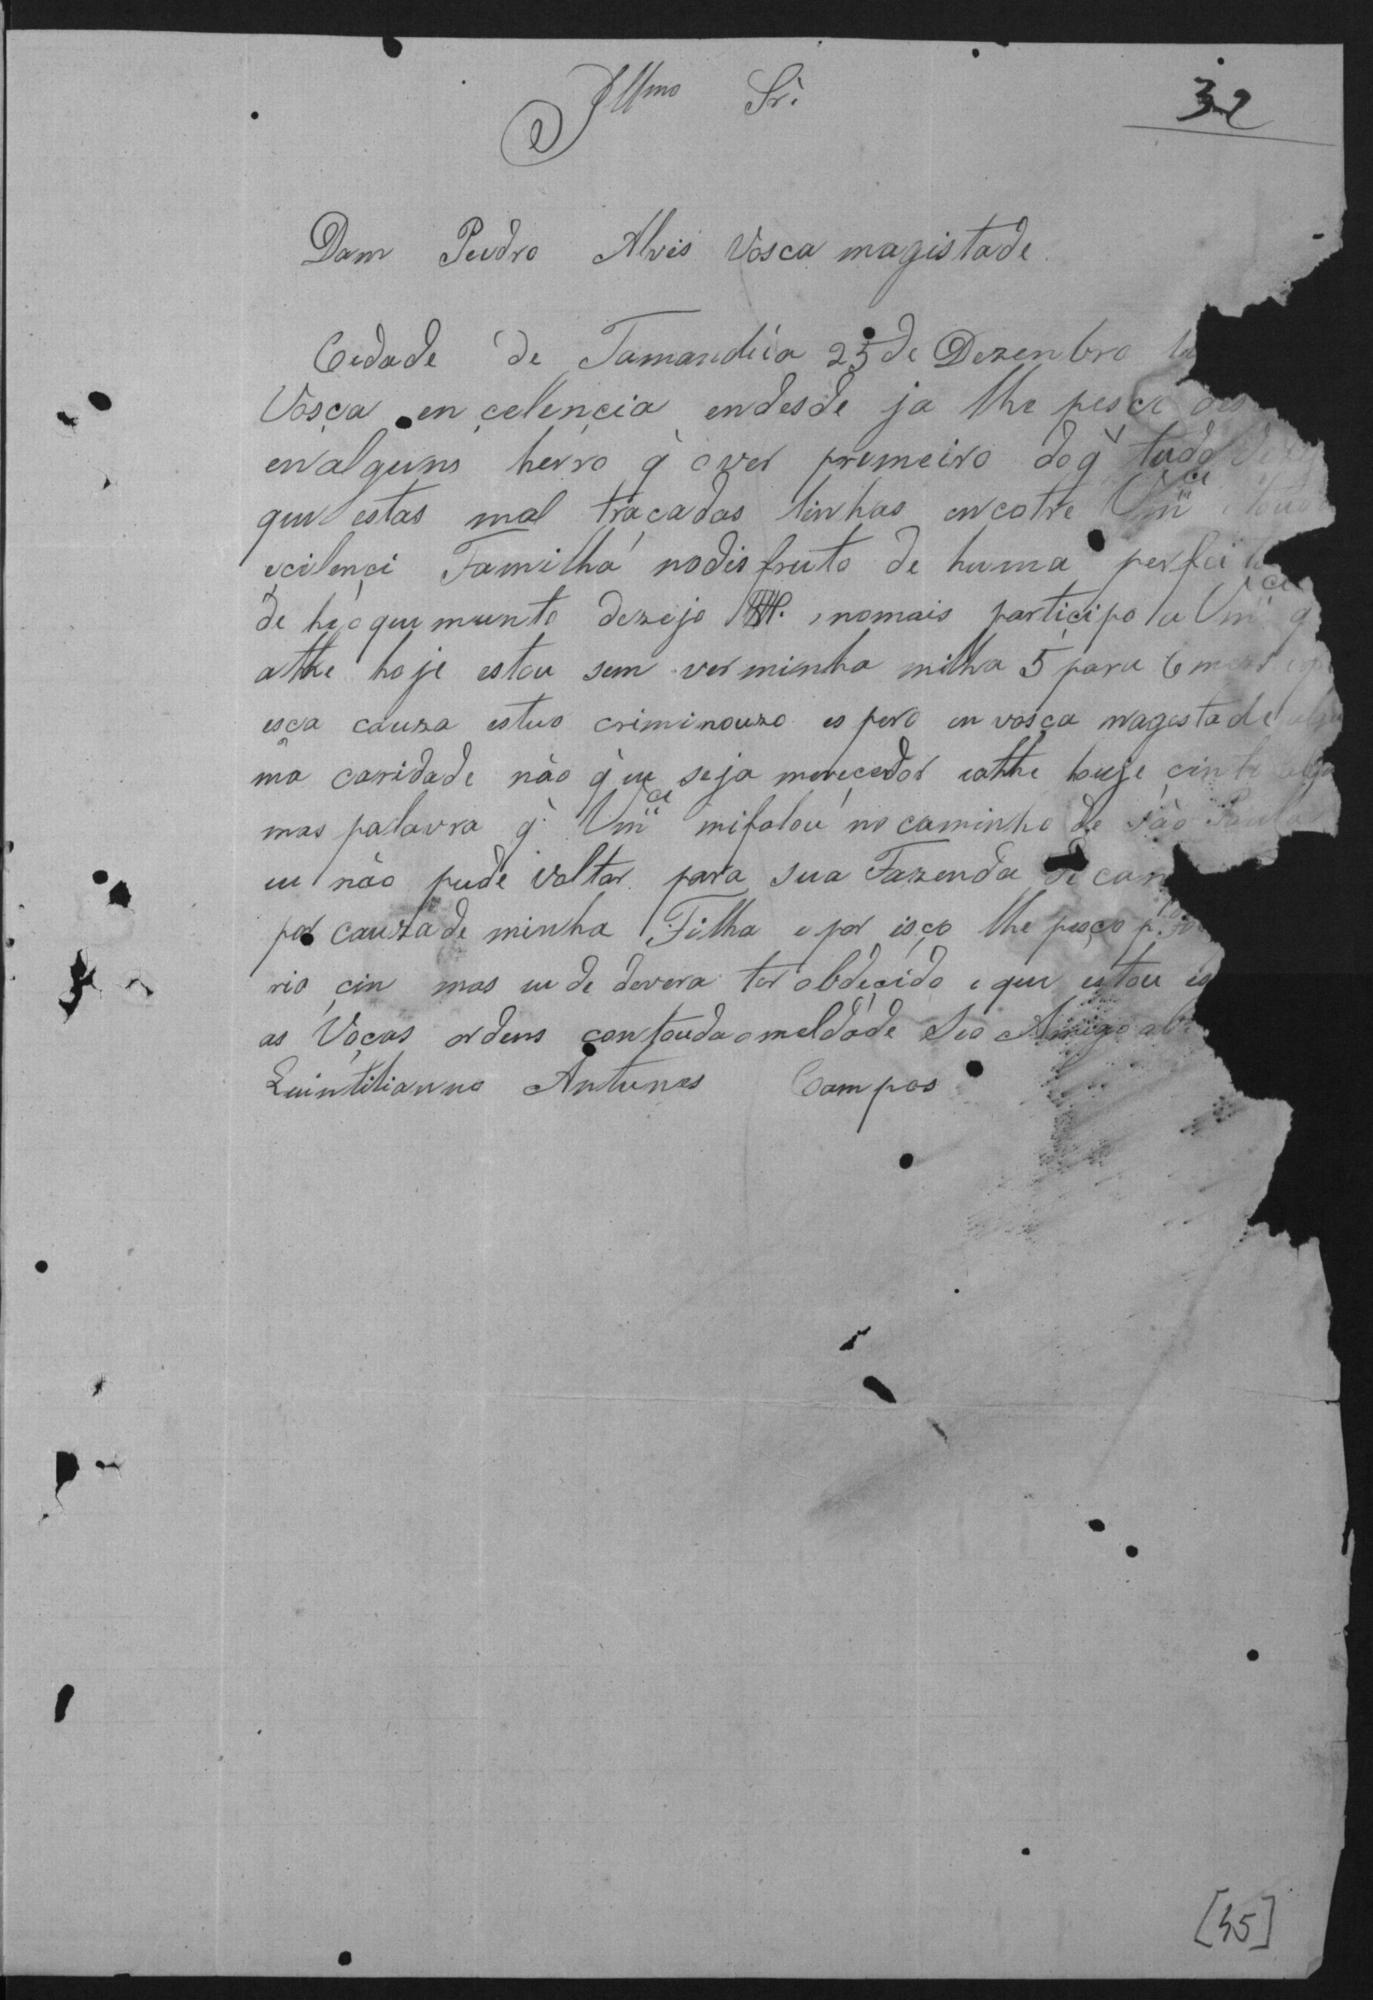 Illmo Sr.
32
Dam Peudro Alvis Vosca magistade
Cedade de Tamandúa 25 de Dezenbro
Vosca en celencia endesde ja lhe pesco
en alguns herro q̀ over premeiro do q̀ tudo
que estas mal tracadas linhas encotre Vmce
ecilenci Familha no disfruto de huma perfei
de he o que munto dezejo nomais participo a Vmce q
athe hoje estou sem ver minha milha 5 para 6
esca cauza estuo criminouzo espero en vosca magestade
ma caridade não q̀ eu seja merecedor eathe houje
mas palavra q̀ Vmce mifalou no caminho de São Paulo
eu não pude voltar para sua Fazenda de
por cauza de minha Filha e por isço lhe pesço
rio çin mas eu de devera ter obdecido e que estou
as Vocas ordens con touda omeldade Seo Amigo
Quintilianno Antunes Campos
[45]